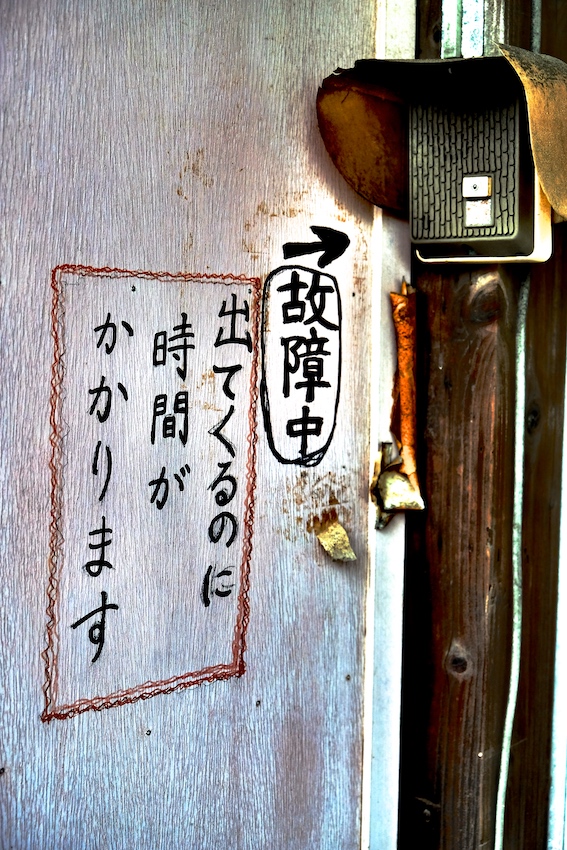 故障中
出てくるのに
時間が
かかります